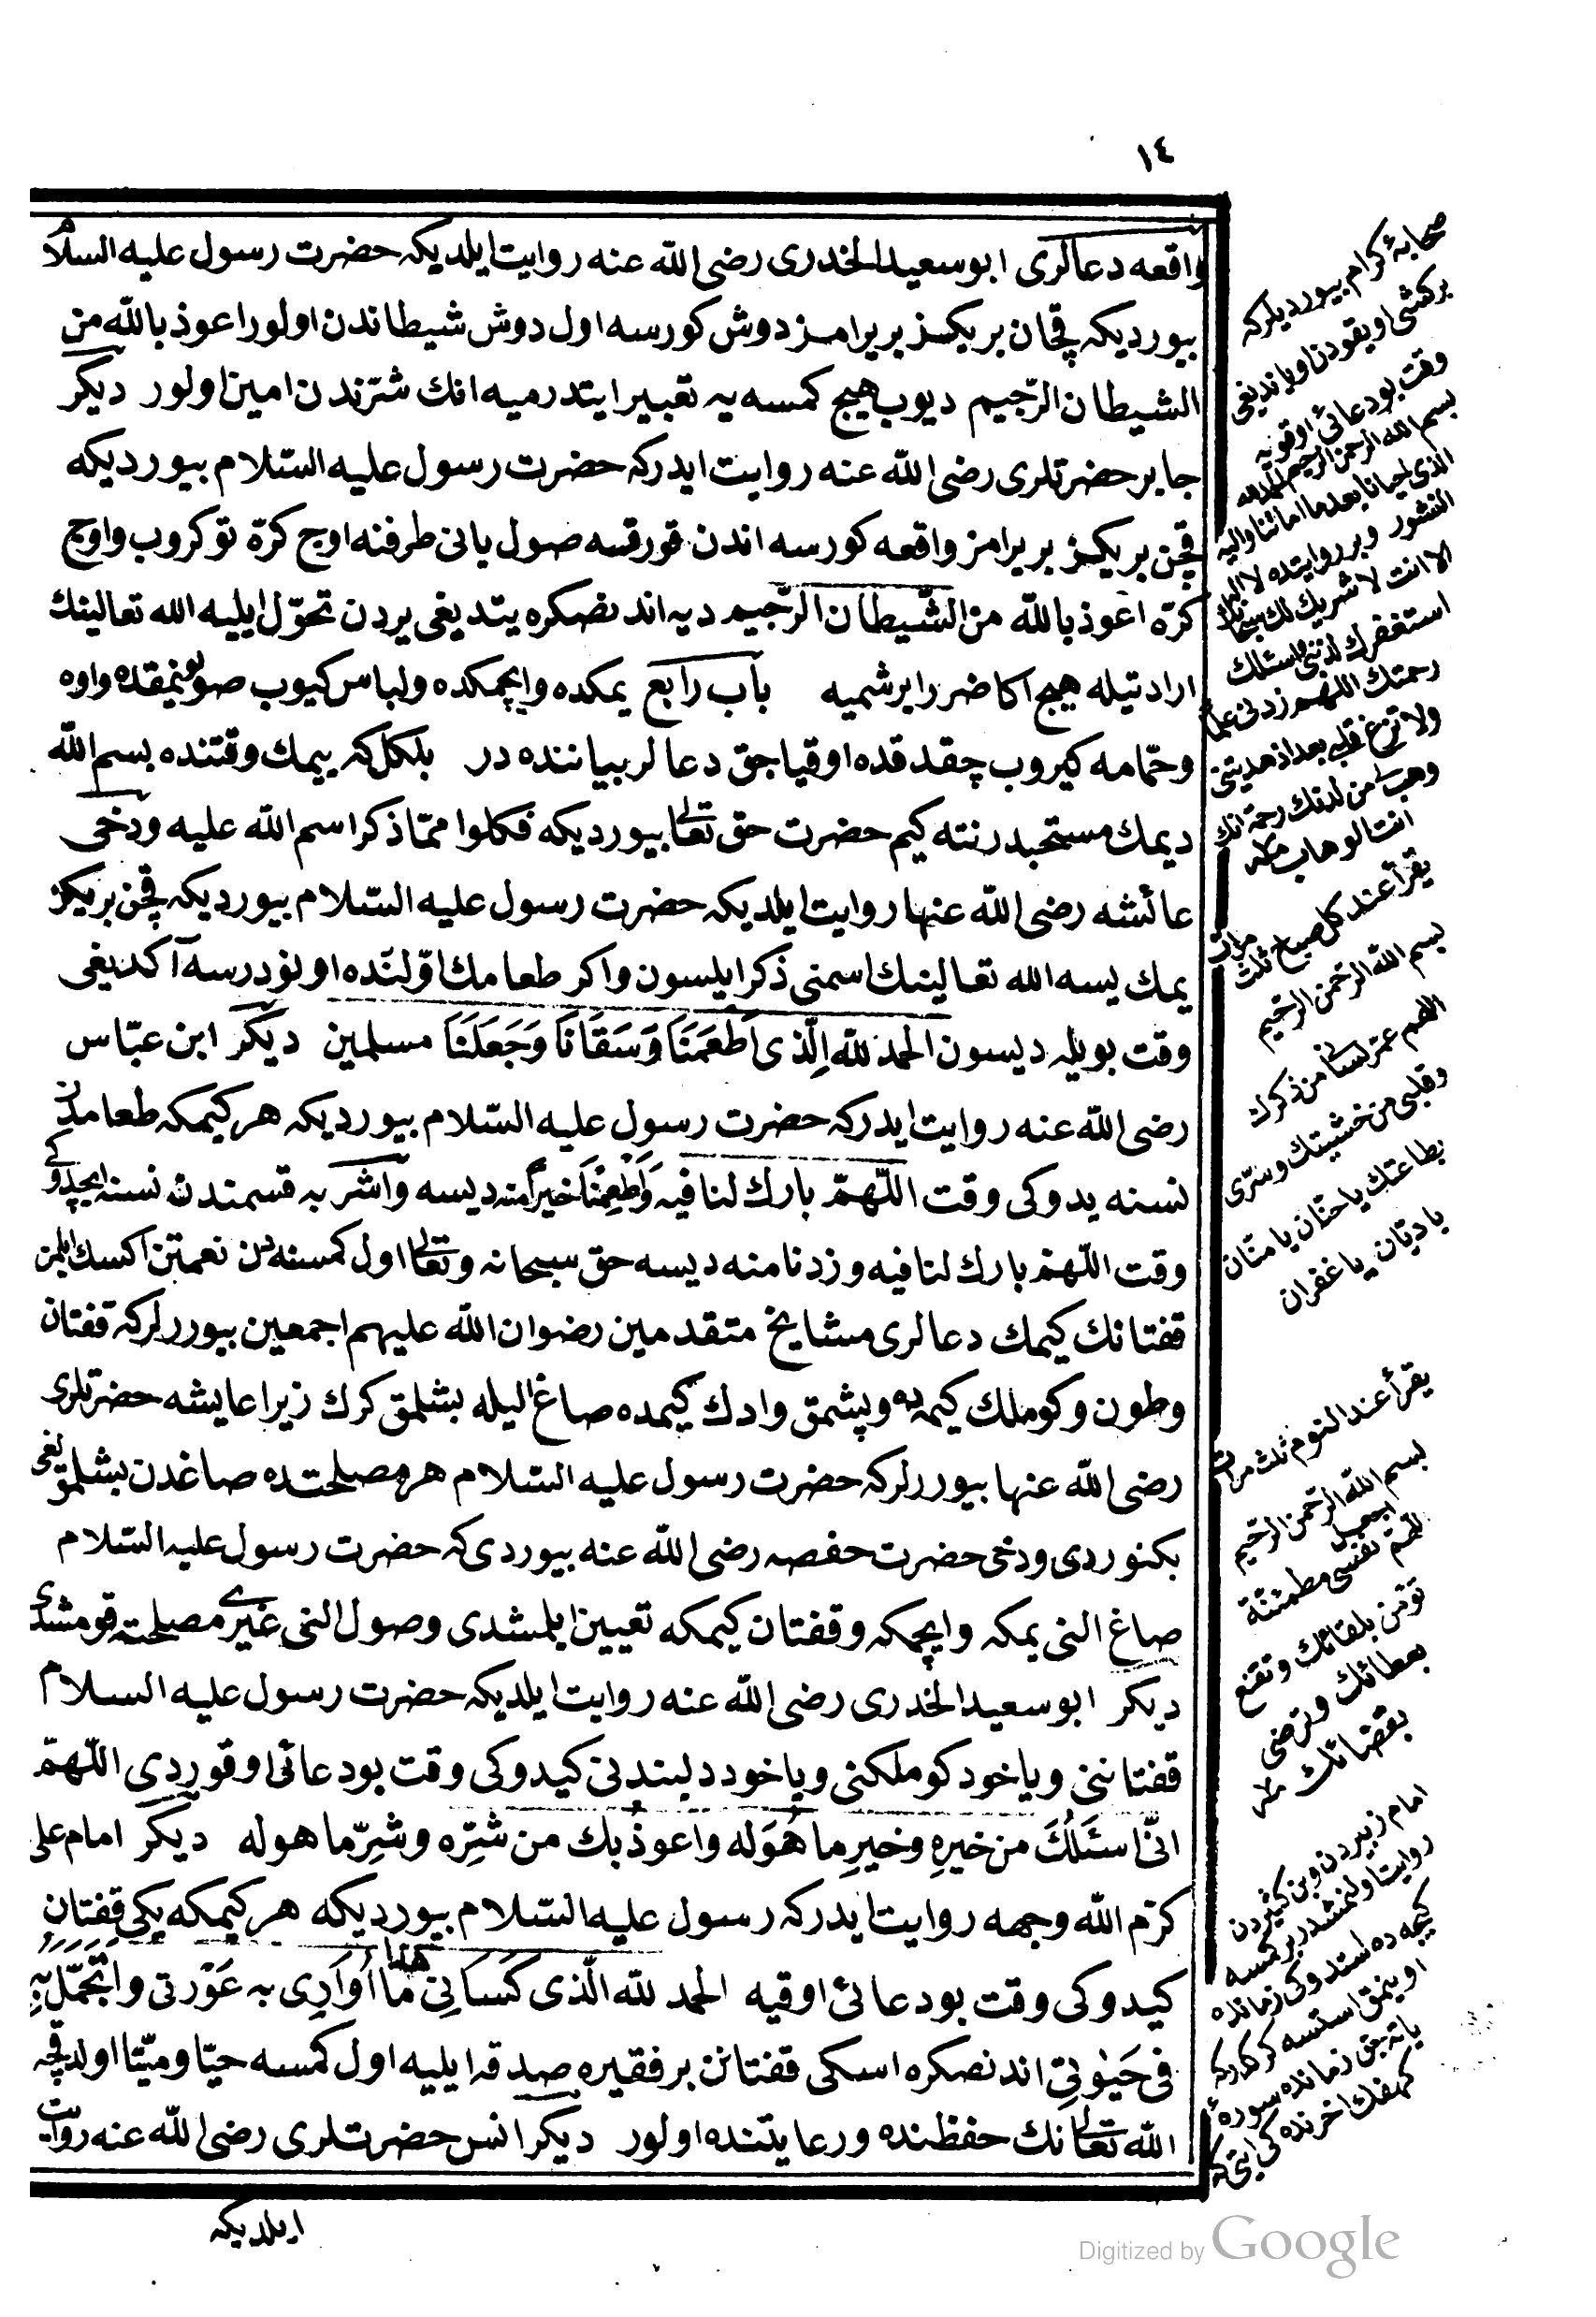 ١٤
واقعه دعالری ابو سعید الخدری رضی الله عنه روایت ایلدیکه حضرت رسول علیه السلام
بیوردیکه قچان بریکز بریرامز دوش کورسه اول دوش شیطاندن اولور اعوذ بالله من
الشیطان الرّجیم دیوب هیچ کمسه یه تعبیر ایتدرمیه انك شرّندن امین اولور دیکر
جابر حضرتلری رضی الله عنه روایت ایدرکه حضرت رسول علیه السّلام بیوردیکه
قچن بریکز بریرامز واقعه کورسه اندن قورقسه صول یانی طرفنه اوچ کرّه توکروب واوچ
کرّه اعوذ بالله من الشّیطان الرّجیم دیه اندنصکره یتدیغی یردن تحوّل ایلیه الله تعالینك
ارادتیله هیچ اکا ضرر ایرشمیه باب رابع یمکده وایچمکده ولباس کیوب صوینمقده واوه
وحمّامه کیروب چقدقده اوقیاجق دعالر بیاننده در بلکل که ییمك وقتنده بسم الله
دیمك مستحبدر نته کیم حضرت حق تعالی بیوردیکه فکلوا ممّا ذکر اسم الله علیه ودخی
عائشه رضی الله عنها روایت ایلدیکه حضرت رسول علیه السّلام بیوردیکه قچن بریکز
یمك یسه الله تعالینك اسمنی ذکر ایلسون واکر طعامك اوّلنده اونودرسه آکدیغی
وقت بویله دیسون الحمد لله الّذی اَطعَمَنَا وَسَقَانَا وَجَعَلَنَا مسلمین دیکر ابن عبّاس
رضی الله عنه روایت ایدرکه حضرت رسول علیه السّلام بیوردیکه هر کیمکه طعامدن
نسنه یدوکی وقت اللّهمّ بارك لنا فیه وَاَطعِمْنَا خیراً منه دیسه واشر به قسمندن نسنه ایچدوکی
وقت اللّهمّ بارك لنا فیه وزدنا منه دیسه حق سبحانه وتعالی اول کمسنه دن نعمتن اکسك ایلمز
قفتانك کیمك دعالری مشایخ متقدمین رضوان الله علیهم اجمعین بیوررلرکه قفتان
وطون وکوملك کیمده وپشمق وادك کیمده صاغ الیله بشلمق کرك زیرا عایشه حضرتلری
رضی الله عنها بیوررلرکه حضرت رسول علیه السّلام هر مصلحتده صاغدن بشلمق لغی
بکنوردی ودخی حضرت حفصه رضی الله عنه بیوردی که حضرت رسول علیه السّلام
صاغ النی یمکه وایچمکه وقفتان کیمکه تعیین ایلمشدی وصول النی غیری مصلحته قومشدی
دیکر ابو سعید الخدری رضی الله عنه روایت ایلدیکه حضرت رسول علیه السلام
قفتاننی ویاخود کوملکنی ویاخود دلبندنی کیدوکی وقت بو دعائی اوقوردی اللّهمّ
انّی اسئَلُكَ من خیرهِ وخیرِ ما هُوَ له واعوذُ بك من شرّه وشرِّ ما هو له دیکر امام علی
کرّم الله وجهه روایت ایدرکه رسول علیه السّلام بیوردیکه هر کیمکه یکی قفتان
کیدوکی وقت بو دعائی اوقیه الحمد لله الّذی کَسَانی هذا ما اُوَارِی به عَوْرتی واَتجَمَّلُ بِهِ
فی حَیٰوتی اندنصکره اسکی قفتانن بر فقیره صدقه ایلیه اول کمسه حیّا ومیّتا اولدقچه
الله تعالی نك حفظنده ورعایتنده اولور دیکر انس حضرتلری رضی الله عنه روایت
ایلدیکه
صحابهٔ کرام بیوردیلرکه
برکشی اویقودن اویاندیغی
وقت بو دعائی اوقویه
بسم الله الرحمن الرحیم الحمد لله
الذی احیانا بعد ما اماتنا والیه
النشور وبر روایتده لا اله
الا انت لا شریك لك سبحانك
استغفرك لذنبی واسئلك
رحمتك اللهم زدنی علما
ولا تزغ قلبی بعد اذ هدیتنی
وهب لی من لدنك رحمة انك
انت الوهاب
یقرأ عند کل صباح ثلث مرات
بسم الله الرّحمن الرّحیم
اللهم عمّر لسانی من ذکرك
وقلبی من خشیتك وسرّی
بطاعتك یا حنّان یا منّان
یا دیّان یا غفران
یقرأ عند النوم ثلث مرات
بسم الله الرّحمن الرّحیم
اللهمّ اجعل نفسی مطمئنّة
تؤمن بلقائك وتقنع
بعطائك وترضی
بقضائك
امام زبیردن وبن کثیردن
روایت اولنمشدر بر کمسه
کیجه ده استدوکی زمانده
اویانمق استسه کرکدرکه
یاته جق زمانده سورهٔ
کهفك اخرنده کی ایتی